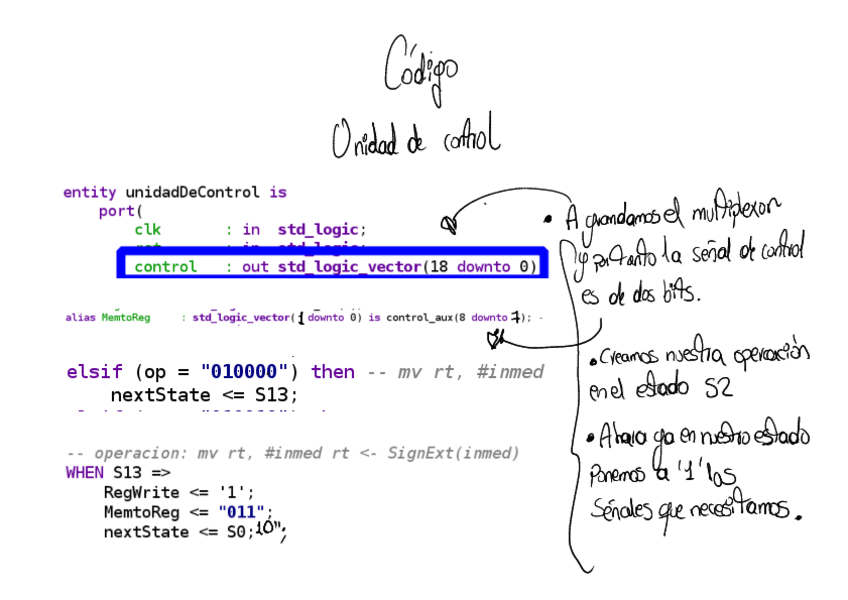 Código
Unidad de control
entity unidadDeControl is
port(
clk : in std_logic;
control : out std_logic_vector(18 downto 0)
alias MemtoReg : std_logic_vector(1 downto 0) is control_aux(8 downto 7); -
elsif (op = "010000") then -- mv rt, #inmed
nextState <= S13;
-- operacion: mv rt, #inmed rt <- SignExt(inmed)
WHEN S13 =>
RegWrite <= '1';
MemtoReg <= "011";
nextState <= S0;10";
• Agrandamos el multiplexor
y por tanto la señal de control
es de dos bits.
• Creamos nuestra operación
en el estado S2
• Ahora ya en nuestro estado
Ponemos a '1' las
Señales que necesitamos.